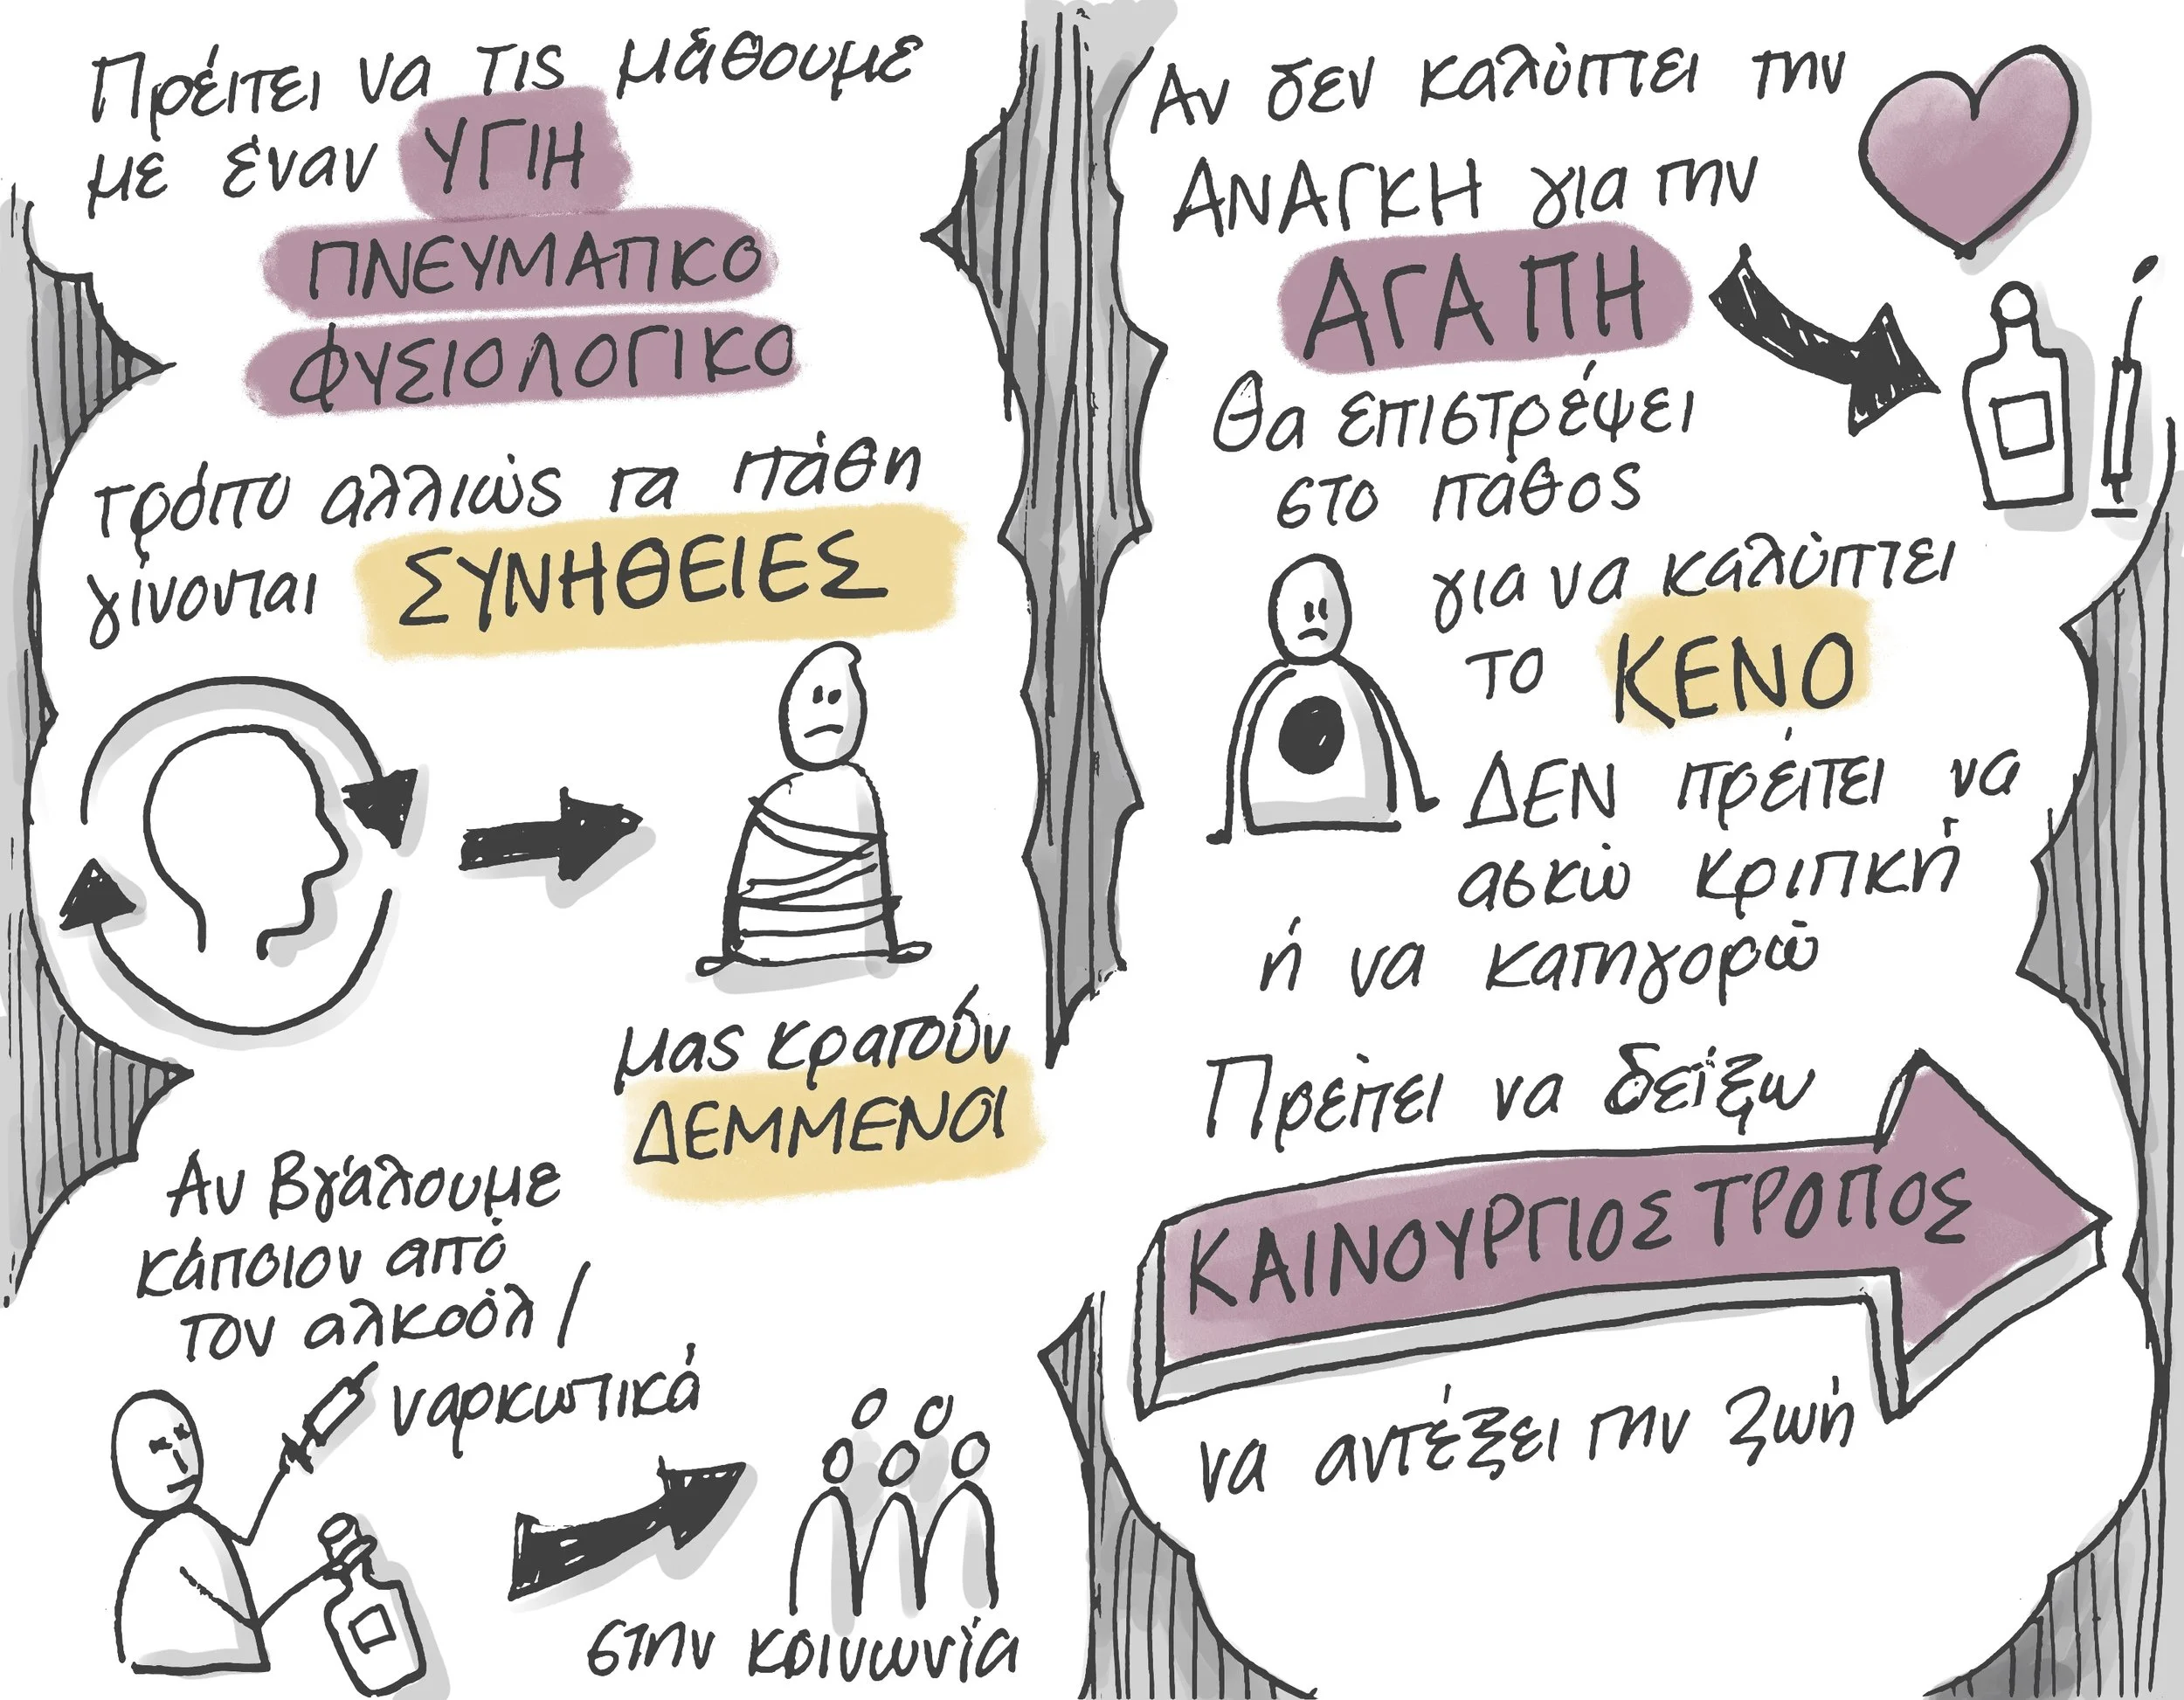 Πρέπει να τις μάθουμε
με έναν ΥΓΙΗ
ΠΝΕΥΜΑΤΙΚΟ
ΦΥΣΙΟΛΟΓΙΚΟ
τρόπο αλλιώς τα πάθη
γίνονται ΣΥΝΗΘΕΙΕΣ
μας κρατούν
ΔΕΜΜΕΝΟΙ
Αν βγάλουμε
κάποιον από
τον αλκοόλ /
ναρκωτικά
στην κοινωνία
Αν δεν καλύπτει την
ΑΝΑΓΚΗ για την
ΑΓΑΠΗ
θα επιστρέψει
στο πάθος
για να καλύπτει
το ΚΕΝΟ
ΔΕΝ πρέπει να
ασκώ κριτική
ή να κατηγορώ
Πρέπει να δείξω
ΚΑΙΝΟΥΡΓΙΟΣ ΤΡΟΠΟΣ
να αντέξει την ζωή